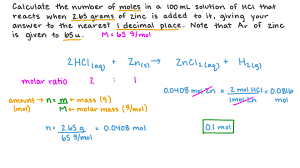 Calculate the number of moles in a 100 mL solution of HCl that
reacts when 2.65 grams of zinc is added to it, giving your
answer to the nearest 1 decimal place. Note that Ar of zinc
is given to 65u. M = 65 g/mol
2HCl(aq) + Zn(s) → ZnCl2(aq) + H2(g)
molar ratio 2 : 1
amount → n = m ← mass (g)
(mol) M ← molar mass (g/mol)
0.0408 mol Zn × 2 mol HCl = 0.0816
1 mol Zn mol
n = 2.65 g = 0.0408 mol
65 g/mol
0.1 mol